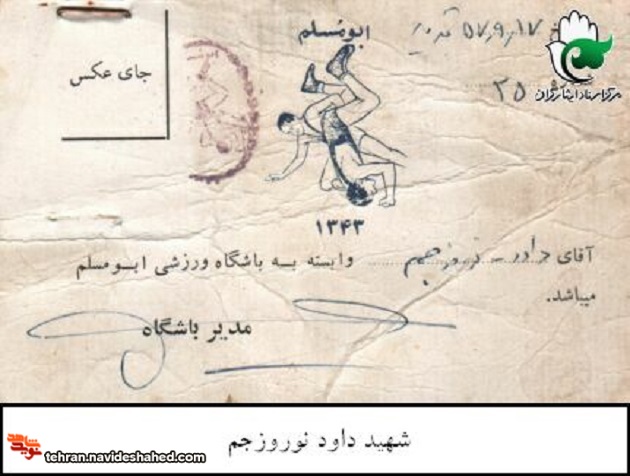 ابومسلم
۵۷,۹,۱۷
۳۵
جای عکس
مرکز اسناد ایثارگران
۱۳۴۳
آقای داود نوروز جم وابسته به باشگاه ورزشی ابومسلم
میباشد.
مدیر باشگاه
شهید داود نوروزجم
نوید شاهد
tehran.navideshahed.com